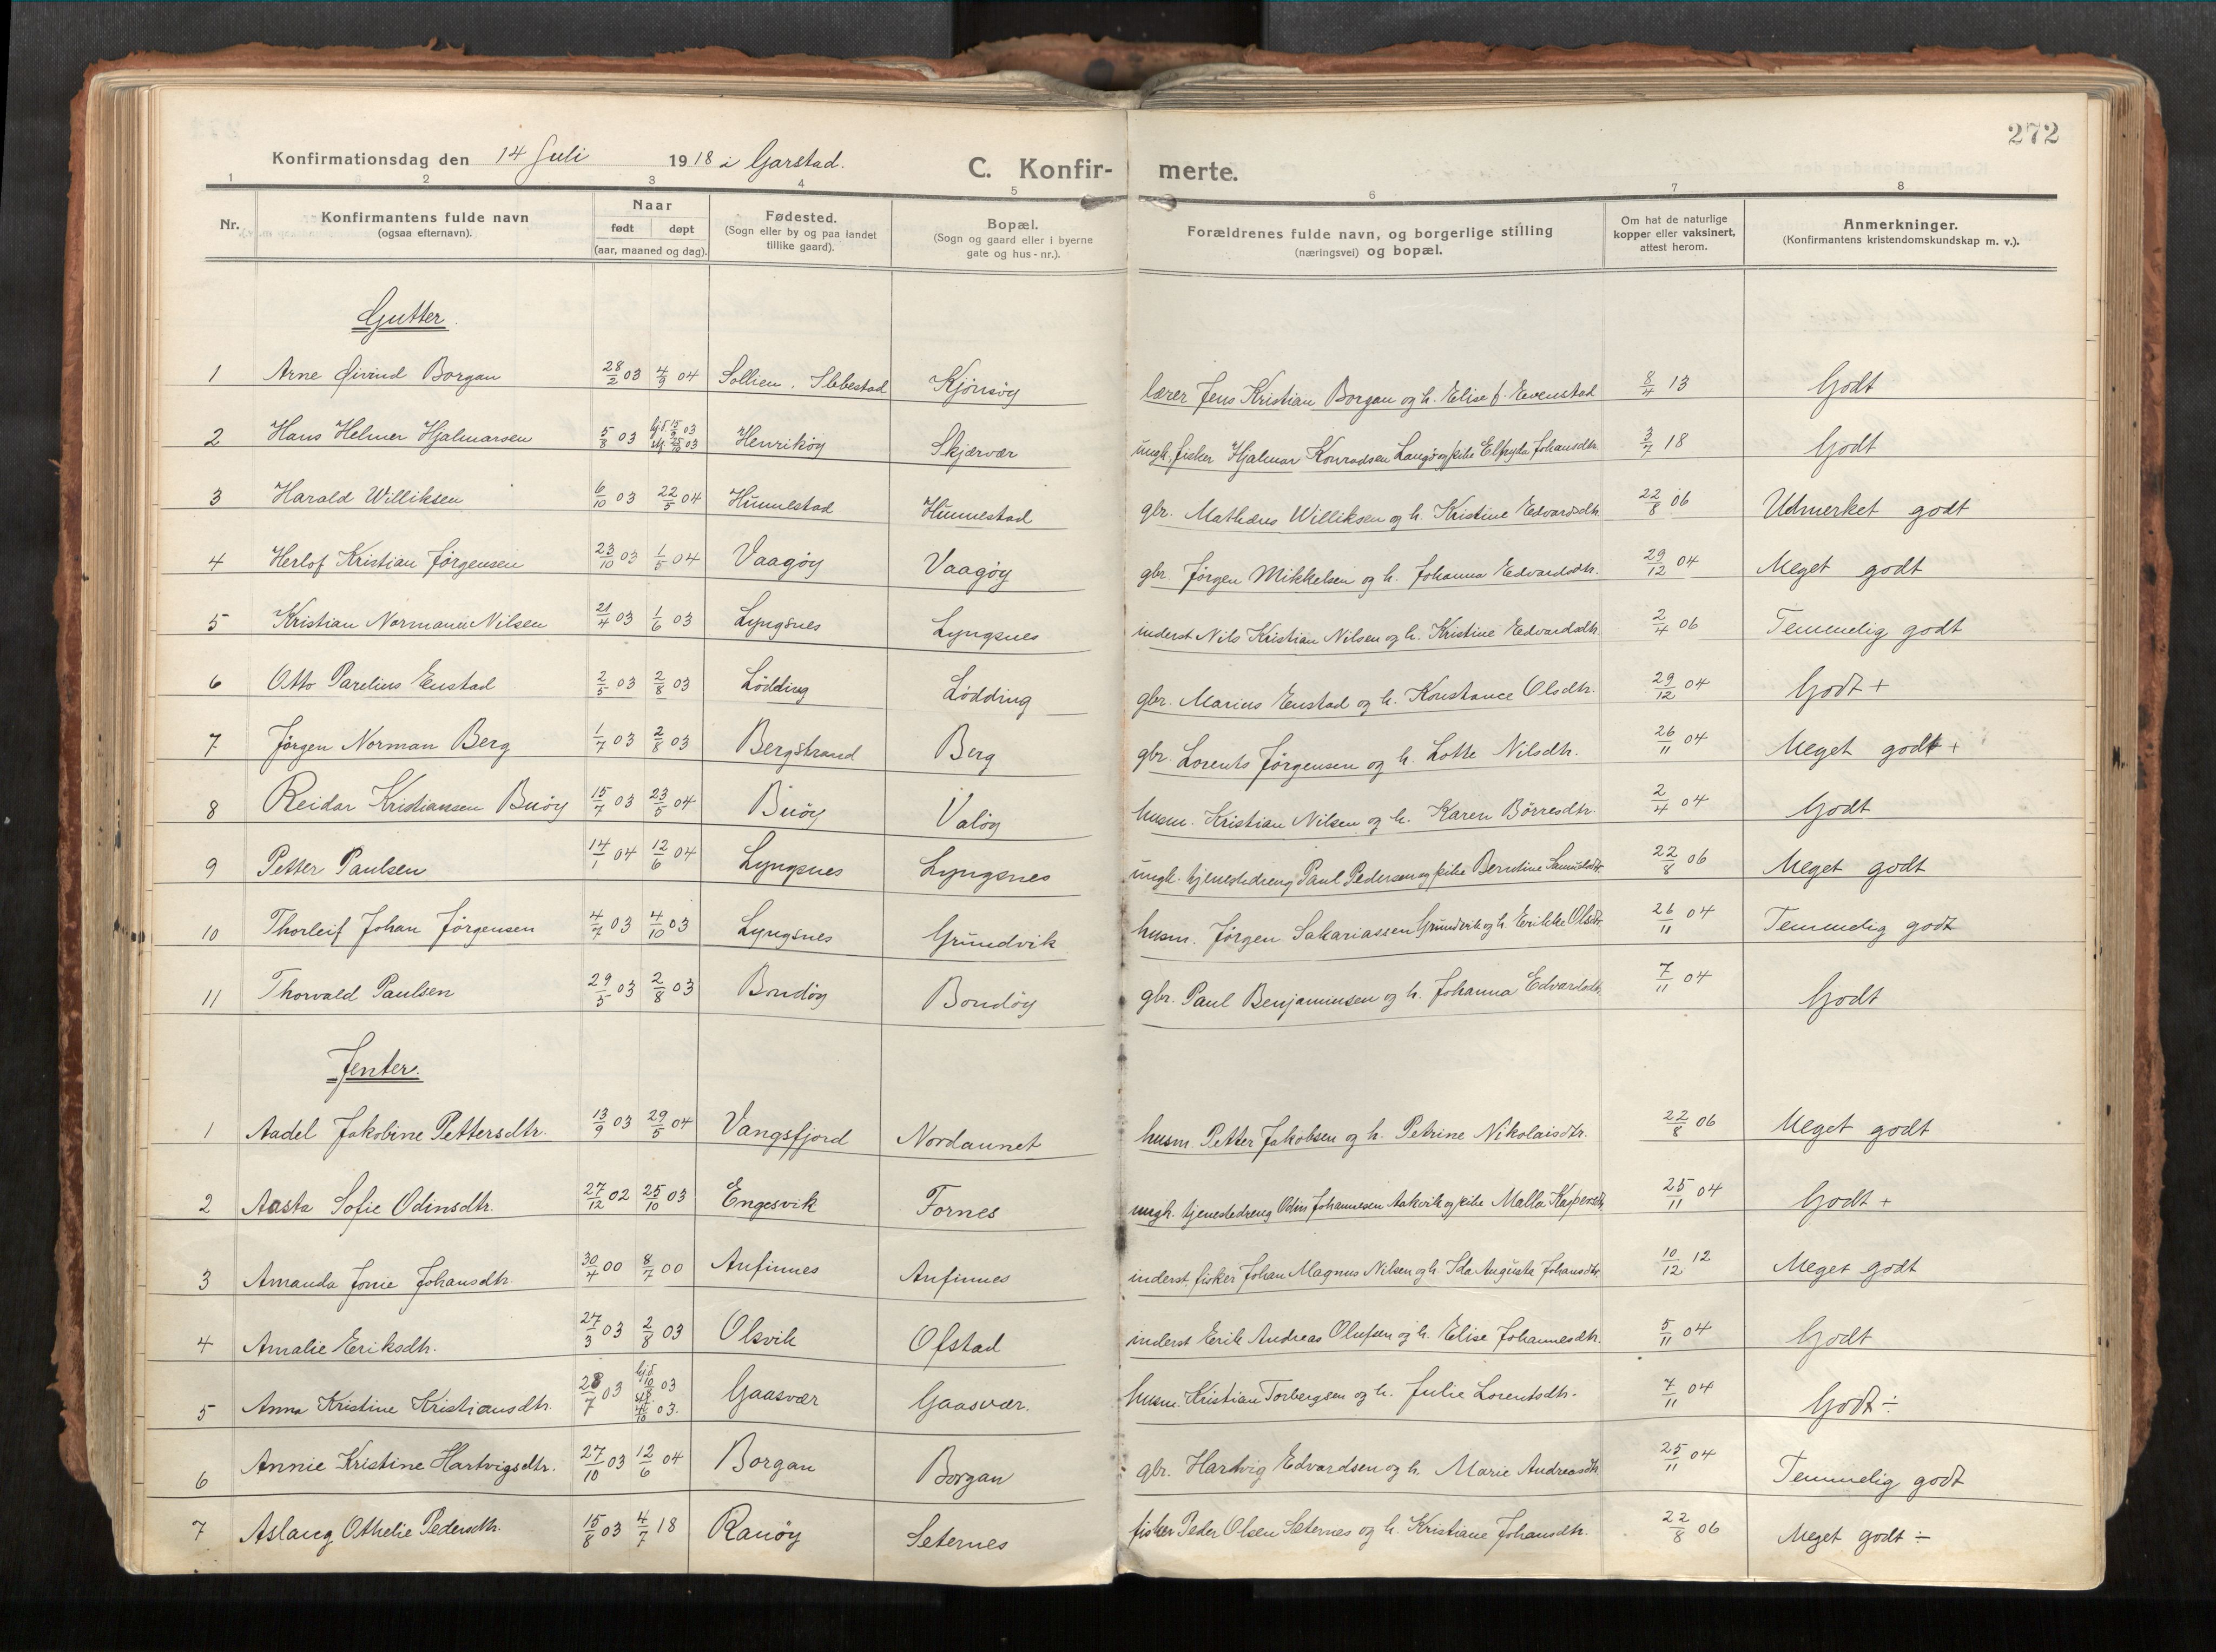 272
Konfirmationsdag den 14 Juli 1918 i Garstad.
C. Konfirmerte.
1 2 3 4 5 6 7 8
Nr. | Konfirmantens fulde navn (ogsaa efternavn). | Naar født | døpt (aar, maaned og dag). | Fødested. (Sogn eller by og paa landet tillike gaard). | Bopæl. (Sogn og gaard eller i byerne gate og hus-nr.). | Forældrenes fulde navn, og borgerlige stilling (næringsvei) og bopæl. | Om hat de naturlige kopper eller vaksinert, attest herom. | Anmerkninger. (Konfirmantens kristendomskundskap m. v.).
Gutter.
1 Arne Øivind Borgan 28/2 03 4/9 04 Sollien. Kjønsöy lærer Jens Kristian Borgan og h. Elise f. Evenstad 8/4 13 Godt
2 Hans Helmer Hjalmarsen 5/8 03 Henriköy Skjærvær ungk. fisker Hjalmar Konradsen Langö og pike Elfrida Johansdtr. 3/7 18 Godt
3 Harald Williksen 6/10 03 22/5 04 Hunnestad Hunnestad gbr. Mathæus Williksen og h. Kristine Edvardsdtr. 22/8 06 Udmerket godt
4 Herlof Kristian Jørgensen 23/10 03 1/5 04 Vaagöy Vaagöy gbr. Jörgen Mikkelsen og h. Johanna Edvardsdtr. 29/12 04 Meget godt
5 Kristian Normann Nilsen 21/4 03 1/6 03 Lyngsnes Lyngsnes inderst Nils Kristian Nilsen og h. Kristine Edvardsdtr. 2/4 06 Temmelig godt
6 Otto Parelius Enstad 2/5 03 2/8 03 Lödding Lödding gbr. Marius Enstad og h. Konstance Olsdtr. 29/12 04 Godt +
7 Jörgen Norman Berg 1/7 03 2/8 03 Bergstrand Berg gbr. Lorents Jörgensen og h. Lotte Nilsdtr. 26/11 04 Meget godt +
8 Reidar Kristiansen Buöy 15/7 03 23/5 04 Buöy Valöy husm. Kristian Nilsen og h. Karen Börresdtr. 2/4 04 Godt
9 Petter Paulsen 14/1 04 12/6 04 Lyngsnes Lyngsnes ungk. tjenestedreng Paul Pedersen og pike Berntine Samuelsdtr. 22/8 06 Meget godt
10 Thorleif Johan Jörgensen 4/7 03 4/10 03 Lyngsnes Grundvik husm. Jörgen Sakariassen Grundvik og h. Erikke Olsdtr. 26/11 04 Temmelig godt
11 Thorvald Paulsen 29/5 03 2/8 03 Bondöy Bondöy gbr. Paul Benjaminsen og h. Johanna Edvardsdtr. 7/11 04 Godt
Jenter.
1 Aadel Jakobine Pettersdtr. 13/9 03 29/5 04 Vangsfjord Nordaunet husm. Petter Jakobsen og h. Petrine Nikolaisdtr. 22/8 06 Meget godt
2 Aasta Sofie Odinsdtr. 27/12 02 25/10 03 Engesvik Fornes ungk. tjenestedreng Odin Johannesen Aakvik og pike Malla Kaspersdtr. 25/11 04 Godt +
3 Amanda Jonie Johansdtr. 30/4 00 8/7 00 Anfinnes Anfinnes inderst fisker Johan Magnus Nilsen og h. Ida Augusta Johansdtr. 10/12 12 Meget godt
4 Amalie Eriksdtr. 27/3 03 2/8 03 Olsvik Ofstad inderst Erik Andreas Olufsen og h. Elise Johannesdtr. 5/11 04 Godt
5 Anna Kristine Kristiansdtr. 28/7 03 Gaasvær Gaasvær. husm. Kristian Torbergsen og h. Julie Lorentsdtr. 7/11 04 Godt ÷
6 Annie Kristine Hartvigsdtr. 27/10 03 12/6 04 Borgan Borgan gbr. Hartvig Edvardsen og h. Marie Andreasdtr. 25/11 04 Temmelig godt
7 Aslaug Othelie Pedersdtr. 15/8 03 4/7 18 Ranöy Seternes fisker Peder Olsen Seternes og h. Kristiane Johansdtr. 22/8 06 Meget godt ÷